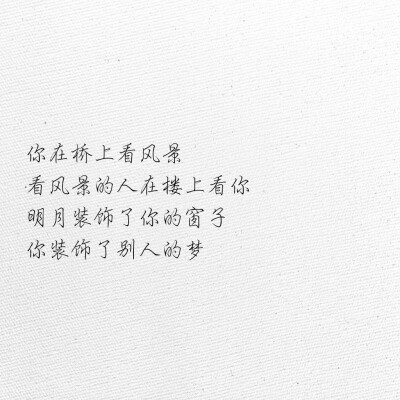 你在桥上看风景
看风景的人在楼上看你
明月装饰了你的窗子
你装饰了别人的梦